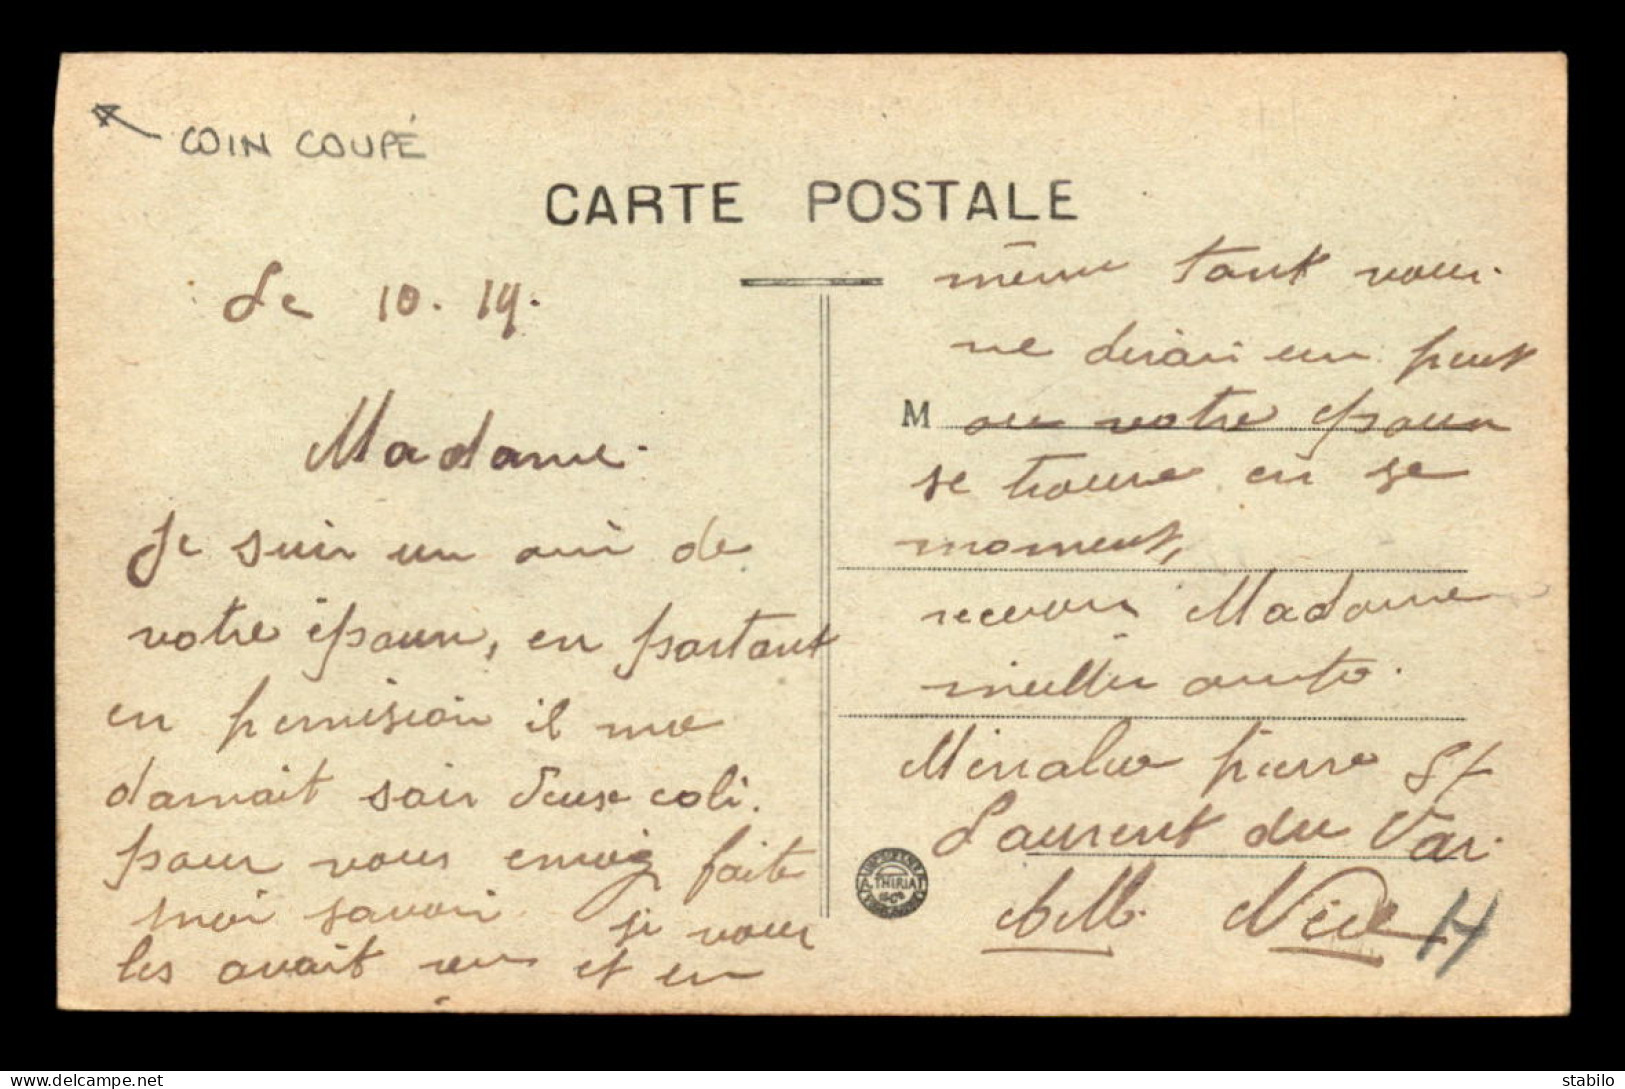 COIN COUPÉ
CARTE POSTALE
Le 10. 19.
Madame.
Je suis un ami de
votre époux, en partant
en permision il me
darnait soir deux coli.
pour vous envoiez faite
moi savoir si vous
les avait reu et en
même tant vous
ne dirai un peut
M ou votre époux
se trouve en se
moment,
recevoir Madame
meiller
pierre St
Laurent du Var.
A.M. Nice
H
A. THIRIAT
delcampe.net
stabilo